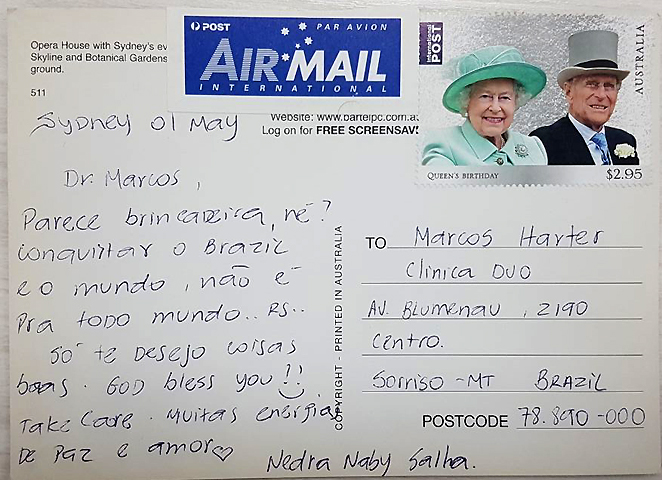 POST PAR AVION
AIR MAIL
INTERNATIONAL
International POST
AUSTRALIA
QUEEN'S BIRTHDAY
$2.95
Opera House with Sydney's ev
Skyline and Botanical Gardens
ground.
511
Website: www.bartelpc.com.au
Log on for FREE SCREENSAV
Sydney 01 May
Dr. Marcos,
Parece brincadeira, né?
conquistar o Brazil
e o mundo, não é
Pra todo mundo.. RS..
Só te Desejo coisas
boas. God bless you!!
Take care. Muitas energias
De Paz e amor♡
Nedra Naby Salha.
COPYRIGHT - PRINTED IN AUSTRALIA
TO Marcos Harter
Clinica DUO
AV. Blumenau, 2190
Centro.
Sorriso - MT BRAZIL
POSTCODE 78.890-000